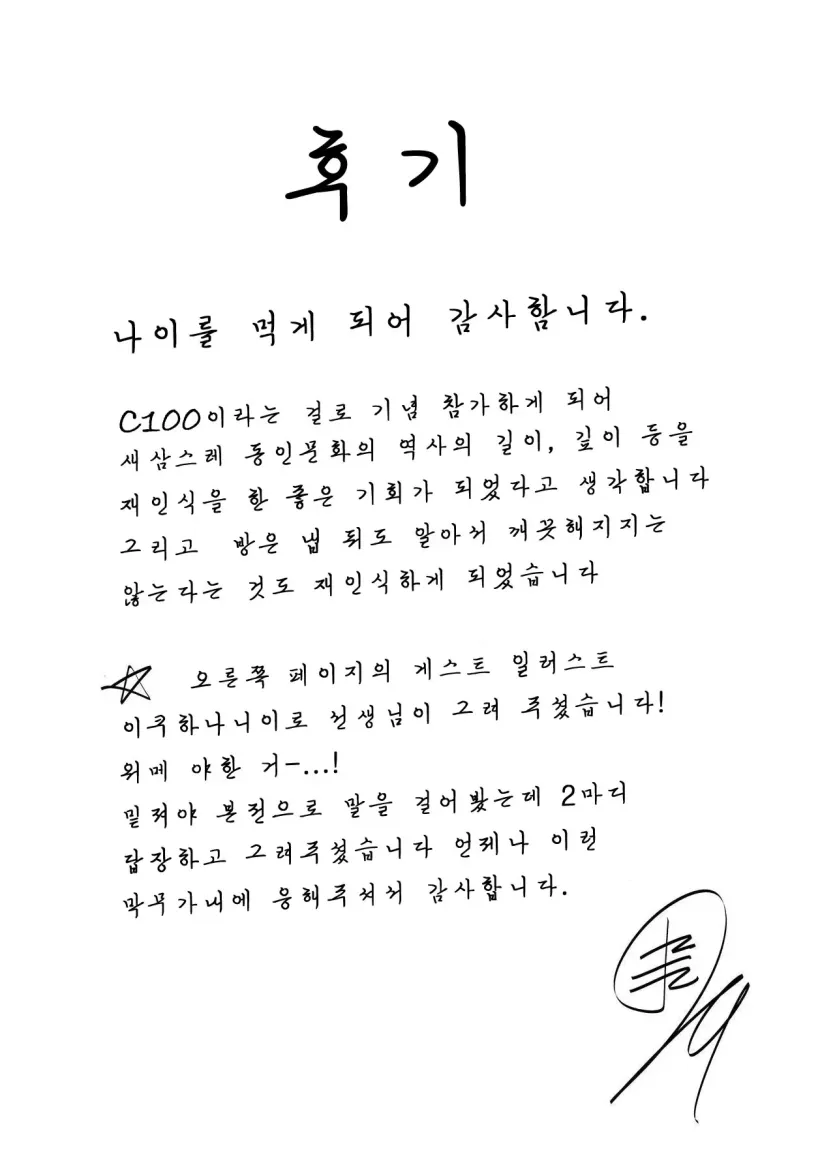 후기
나이를 먹게 되어 감사함니다.
C100이라는 걸로 기념 참가하게 되어
새삼스레 동인문화의 역사의 길이, 깊이 등을
재인식을 한 좋은 기회가 되었다고 생각합니다
그리고 방은 냅 둬도 알아서 깨끗해지지는
않는다는 것도 재인식하게 되었습니다
오른쪽 페이지의 게스트 일러스트
이쿠하나니이로 선생님이 그려 주셨습니다!
위메 야한 거-...!
밑져야 본전으로 말을 걸어봤는데 2마디
답장하고 그려주셨습니다 언제나 이런
막무가내에 응해주셔서 감사합니다.